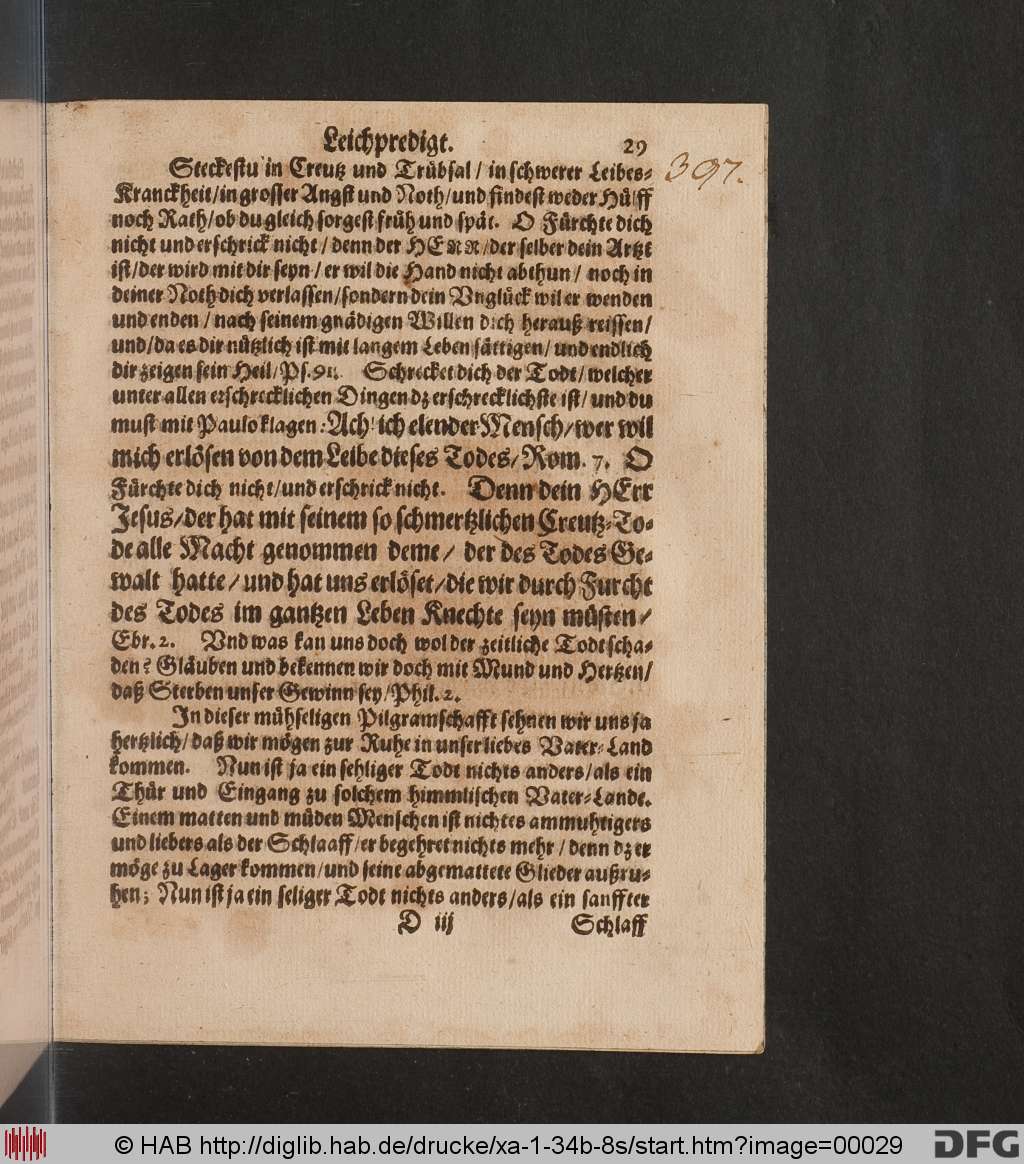 Leichpredigt. 29
397.
Steckestu in Creutz und Trübsal / in schwerer Leibes-
Kranckheit/in grosser Angst und Noth/und findest weder Hülff
noch Rath/ob du gleich sorgest früh und spät. O Fürchte dich
nicht und erschrick nicht / denn der HERR/der selber dein Artzt
ist/der wird mit dir seyn / er wil die Hand nicht abthun / noch in
deiner Noth dich verlassen/sondern dein Vnglück wil er wenden
und enden / nach seinem gnädigen Willen dich herauß reissen/
und/da es dir nützlich ist mit langem Leben sättigen/ und endlich
dir zeigen sein Heil/Ps.91. Schrecket dich der Todt/welcher
unter allen erschrecklichen Dingen dz erschrecklichste ist/und du
must mit Paulo klagen: Ach! ich elender Mensch/wer wil
mich erlösen von dem Leibe dieses Todes/Rom. 7. O
Fürchte dich nicht/und erschrick nicht. Denn dein HErr
Jesus/der hat mit seinem so schmertzlichen Creutz-To-
de alle Macht genommen deme/ der des Todes Ge-
walt hatte/und hat uns erlöset/die wir durch Furcht
des Todes im gantzen Leben Knechte seyn müsten/
Ebr.2. Vnd was kan uns doch wol der zeitliche Todt scha-
den? Gläuben und bekennen wir doch mit Mund und Hertzen/
daß Sterben unser Gewinn sey/Phil.2.
In dieser mühseligen Pilgramschafft sehnen wir uns ja
hertzlich/daß wir mögen zur Ruhe in unser liebes Vater-Land
kommen. Nun ist ja ein sehliger Todt nichts anders/als ein
Thür und Eingang zu solchem himmlischen Vater-Lande.
Einem matten und müden Menschen ist nichtes ammuhtigers
und liebers als der Schlaaff/er begehret nichts mehr / denn dz er
möge zu Lager kommen/und seine abgemattete Glieder außru-
hen; Nun ist ja ein seliger Todt nichts anders/als ein sanffter
D iij Schlaff
© HAB http://diglib.hab.de/drucke/xa-1-34b-8s/start.htm?image=00029 DFG